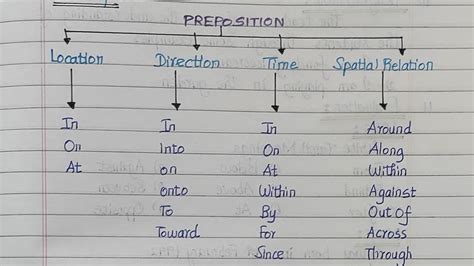 PREPOSITION
Location Direction Time Spatial Relation
In In In Around
On Into On Along
At on At Within
onto Within Against
To By Out Of
Toward For Across
Since Through